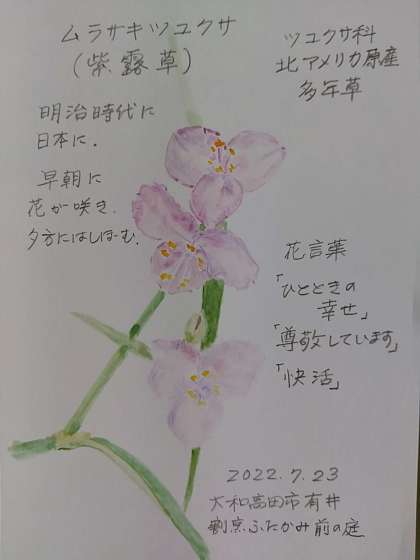 ムラサキツユクサ
(紫露草)
ツユクサ科
北アメリカ原産
多年草
明治時代に
日本に.
早朝に
花が咲き.
夕方にはしぼーむ.
花言葉
「ひとときの
幸せ」
「尊敬しています」
「快活」
2022.7.23
大和高田市有井
割烹ふたかみ前の庭